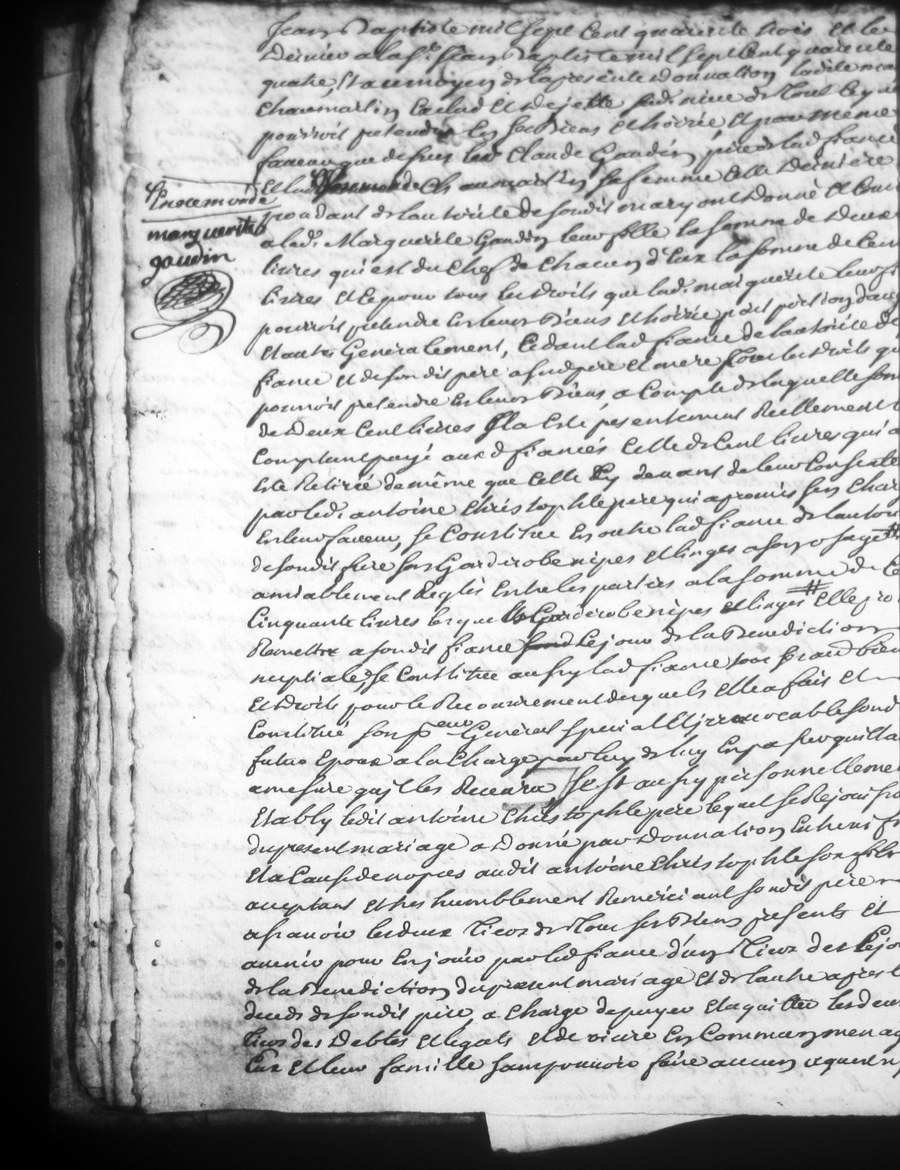 Jean Baptiste mil sept cent quarente trois et le
Dernier a la st. Jean Baptiste mil sept cent quarente
quatre, Et aumoyen de la presente donnation ladite
Chaumartin Exclud Et dejette de tout ce que
pourroit pretendre les ses Biens et hoirie Et par meme
faveur que dessus led. Claude Gaudin pere de lad. fiance
Et lad. Chaumartin sa femme Celle Derniere
procedant de lautorité de sondit mary ont donné Et
a lad. Marguerite Gaudin leur fille la somme de deux
livres qui est du chef de chacun d'Eux la somme de Cent
livres Et Ce pour tous les droits que lad. marguerite leur
pourroit pretendre En leurs Biens Et hoirie
Et autres Generalement, Cedant lad. fiance de lautorité de
fiance et de sondit pere a sesd. pere et mere tous les droits
pourroit pretendre En leurs Biens a Compte de laquelle
de deux Cent livres Il a Esté presentement Reellement
Comptant payé auxd. fiancés Celle de Cent livres
Esté Retirée de même que Celle Cy devant de leur Consente
par led. antoine Christophle pere qui a promis
En leur faveur, se Constitue En outre lad. fiance de lautor
de sondit pere ses Garderobe nipes et linges a son usage #
amiablement Reglés Entre les parties a la somme de
Cinquante livres lesquels Garderobe nipes et linges # Elle
Remettre a sondit fiance le jour de la Benediction
nuptialle, se Constitue aussy lad. fiance tous ses aud. biens
Et droits pour le Recouvrement desquels Elle a fait et
Constitué son preur General special Et irrevocable sond
futur Epoux a la Charge par luy de luy En passer quitta
amesure quil les Recevra Sest aussy personnellement
Etably ledit antoine Christophle pere lequel se Rejouissant
du present mariage a Donné par Donnation Entrevifs
Et a Cause de nopces audit antoine Christophle son fils
acceptant et tres humblement Remerciant sondit pere
asçavoir les deux tiers de tous ses Biens presents et
avenir pour En jouir par led. fiance d'un tiers des le jour
de la Benediction du present mariage Et de lautre apres le
deceds de sondit pere, a Charge de payer Et aquitter les deux
tiers des debtes et legats et de vivre En Commun menage
Eux et leur famille sans pouvoir faire aucun
Rozemonde
marguerite
gaudin